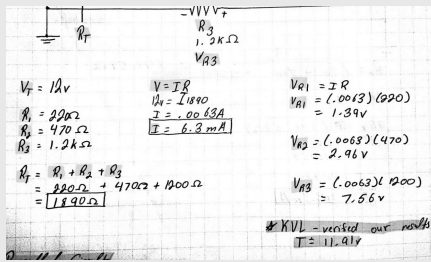 - +
R_T
R_3
1.2KΩ
V_R3
V_T = 12v
R_1 = 220Ω
R_2 = 470Ω
R_3 = 1.2KΩ
R_T = R_1 + R_2 + R_3
= 220Ω + 470Ω + 1200Ω
= 1890Ω
V = IR
12v = I 1890
I = .0063A
I = 6.3mA
V_R1 = IR
V_R1 = (.0063)(220)
= 1.39v
V_R2 = (.0063)(470)
= 2.96v
V_R3 = (.0063)(1200)
= 7.56v
* KVL - verified our results
T = 11.91v